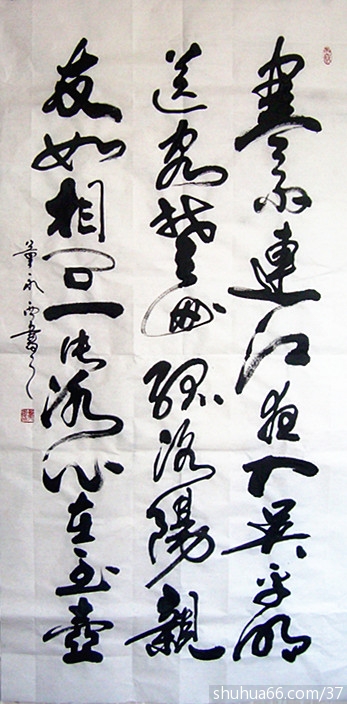 寒雨連江夜入吴平明
送客楚山孤洛陽親
友如相问一片冰心在玉壶
董永西書
shuhua66.com/37